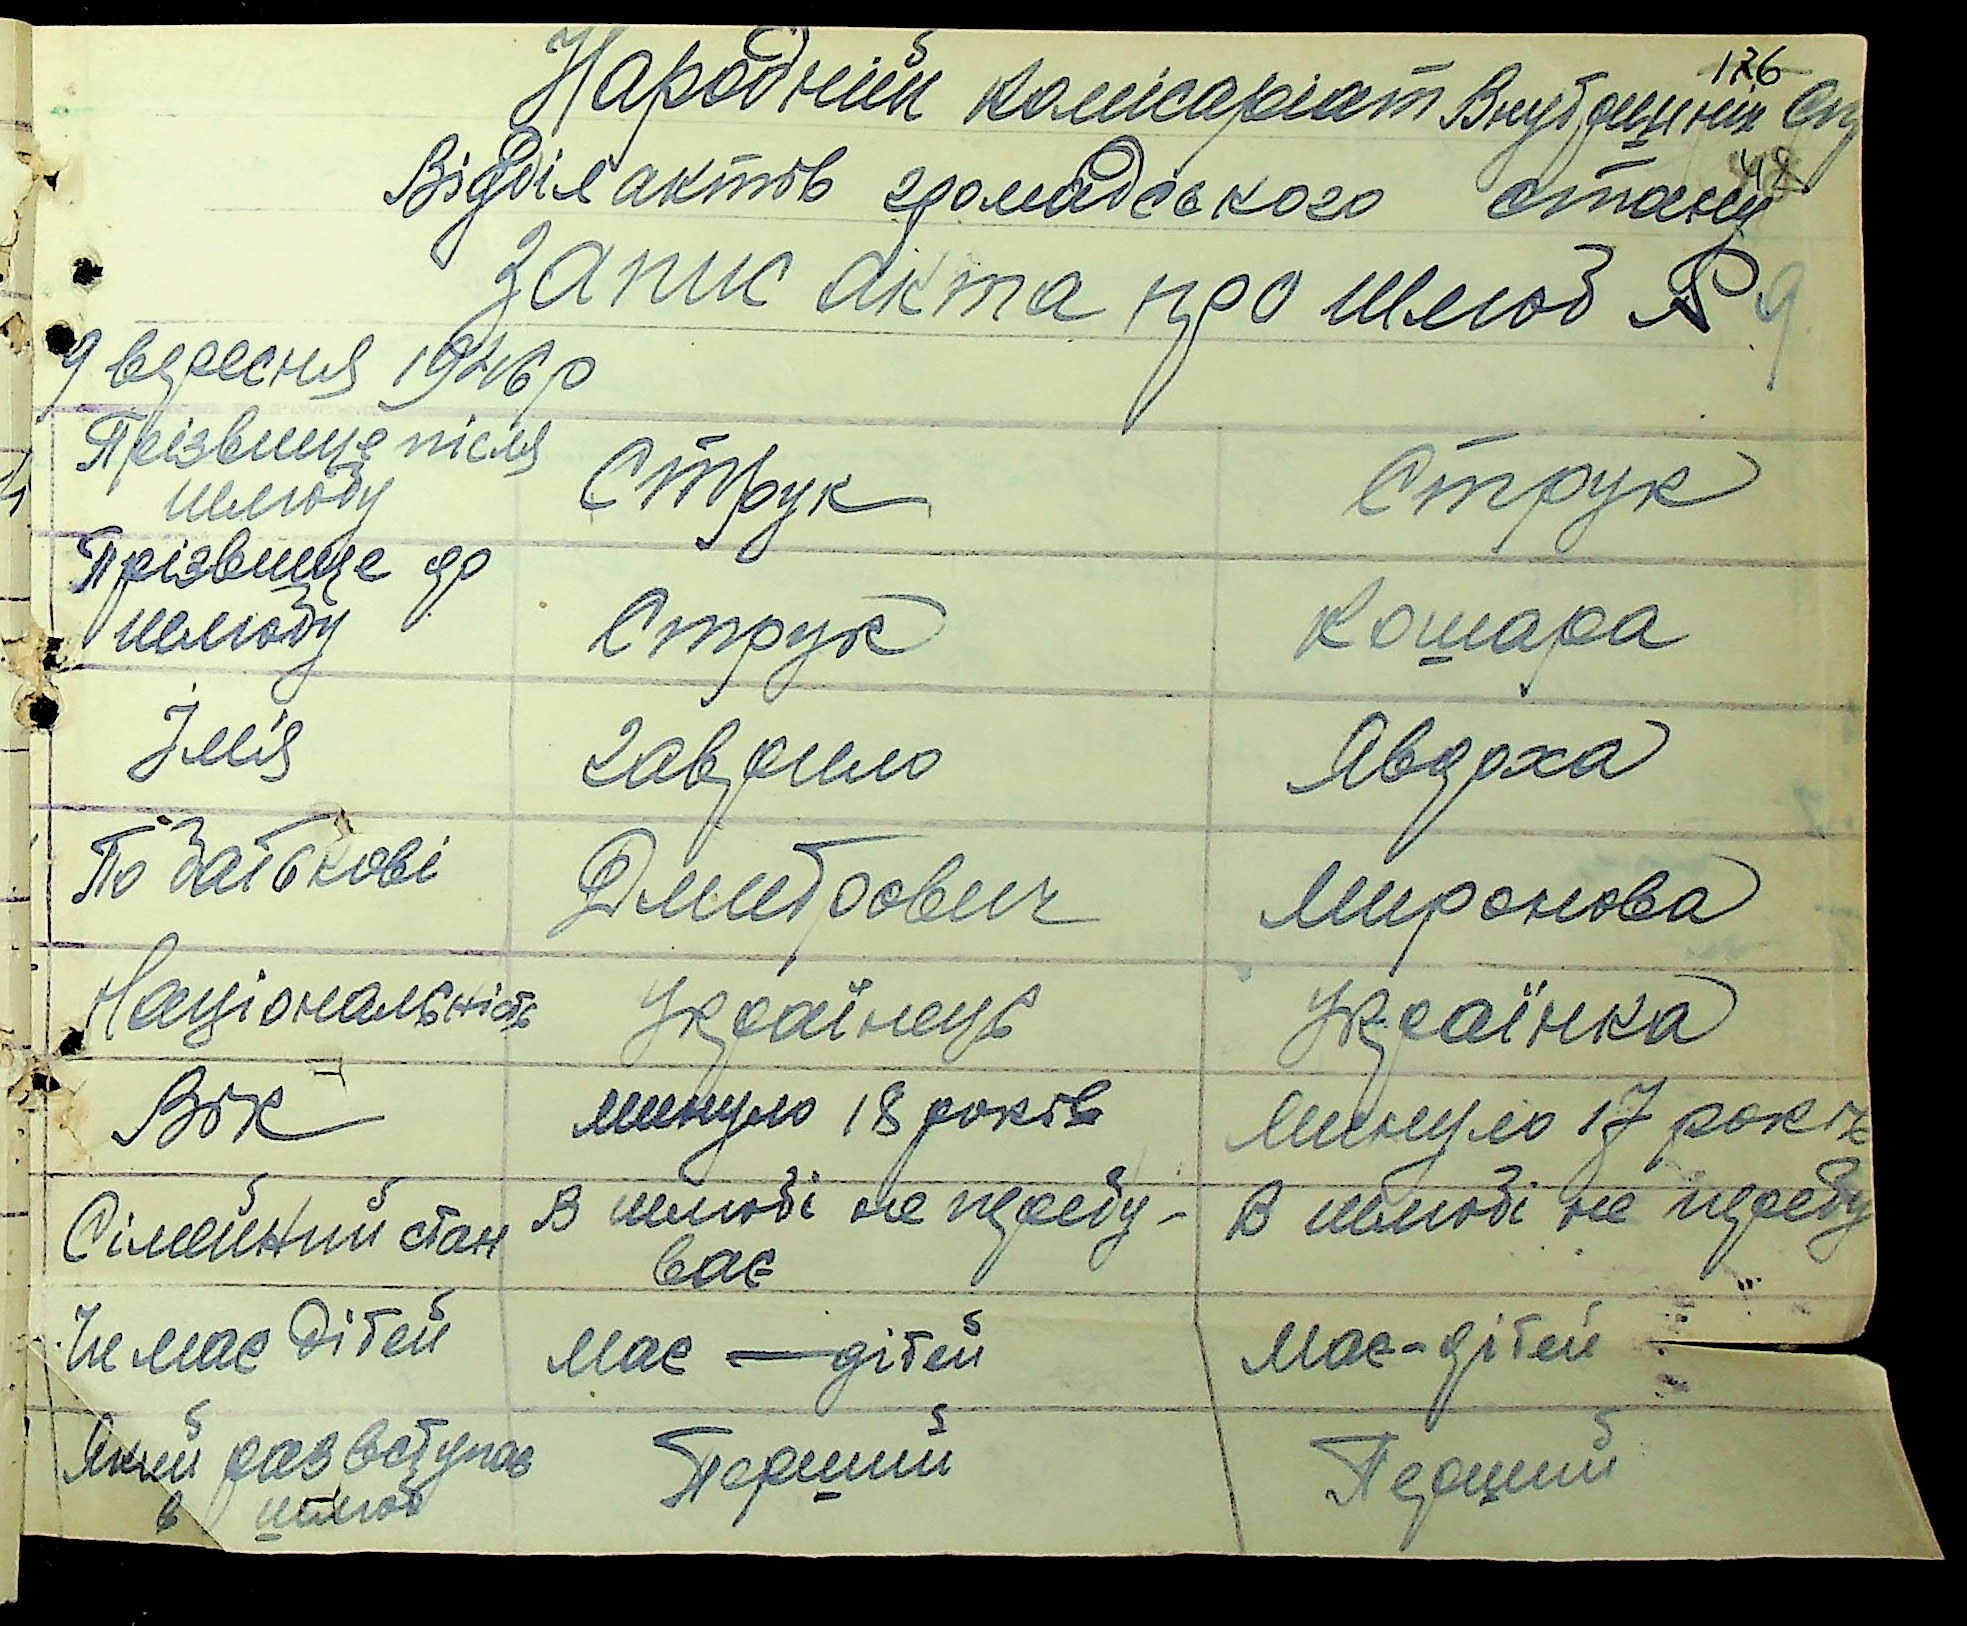 176
Народній Комісаріат Внутрішніх Сп
48
Відділ актів громадського стану
Запис акта про шлюб № 9
9 вересня 1946 р
Прізвище після шлюбу Струк Струк
Прізвище до шлюбу Струк Кошара
Імія Гаврило Явдоха
По Батькові Дмитрович Миронова
Національність Українець Українка
Вік минуло 18 років Минуло 17 років
Сімейний стан В шлюбі не перебу- В шлюбі не перебу
ває
Чи має дітей має — дітей має - дітей
Який раз вступає Перший Перший
в шлюб